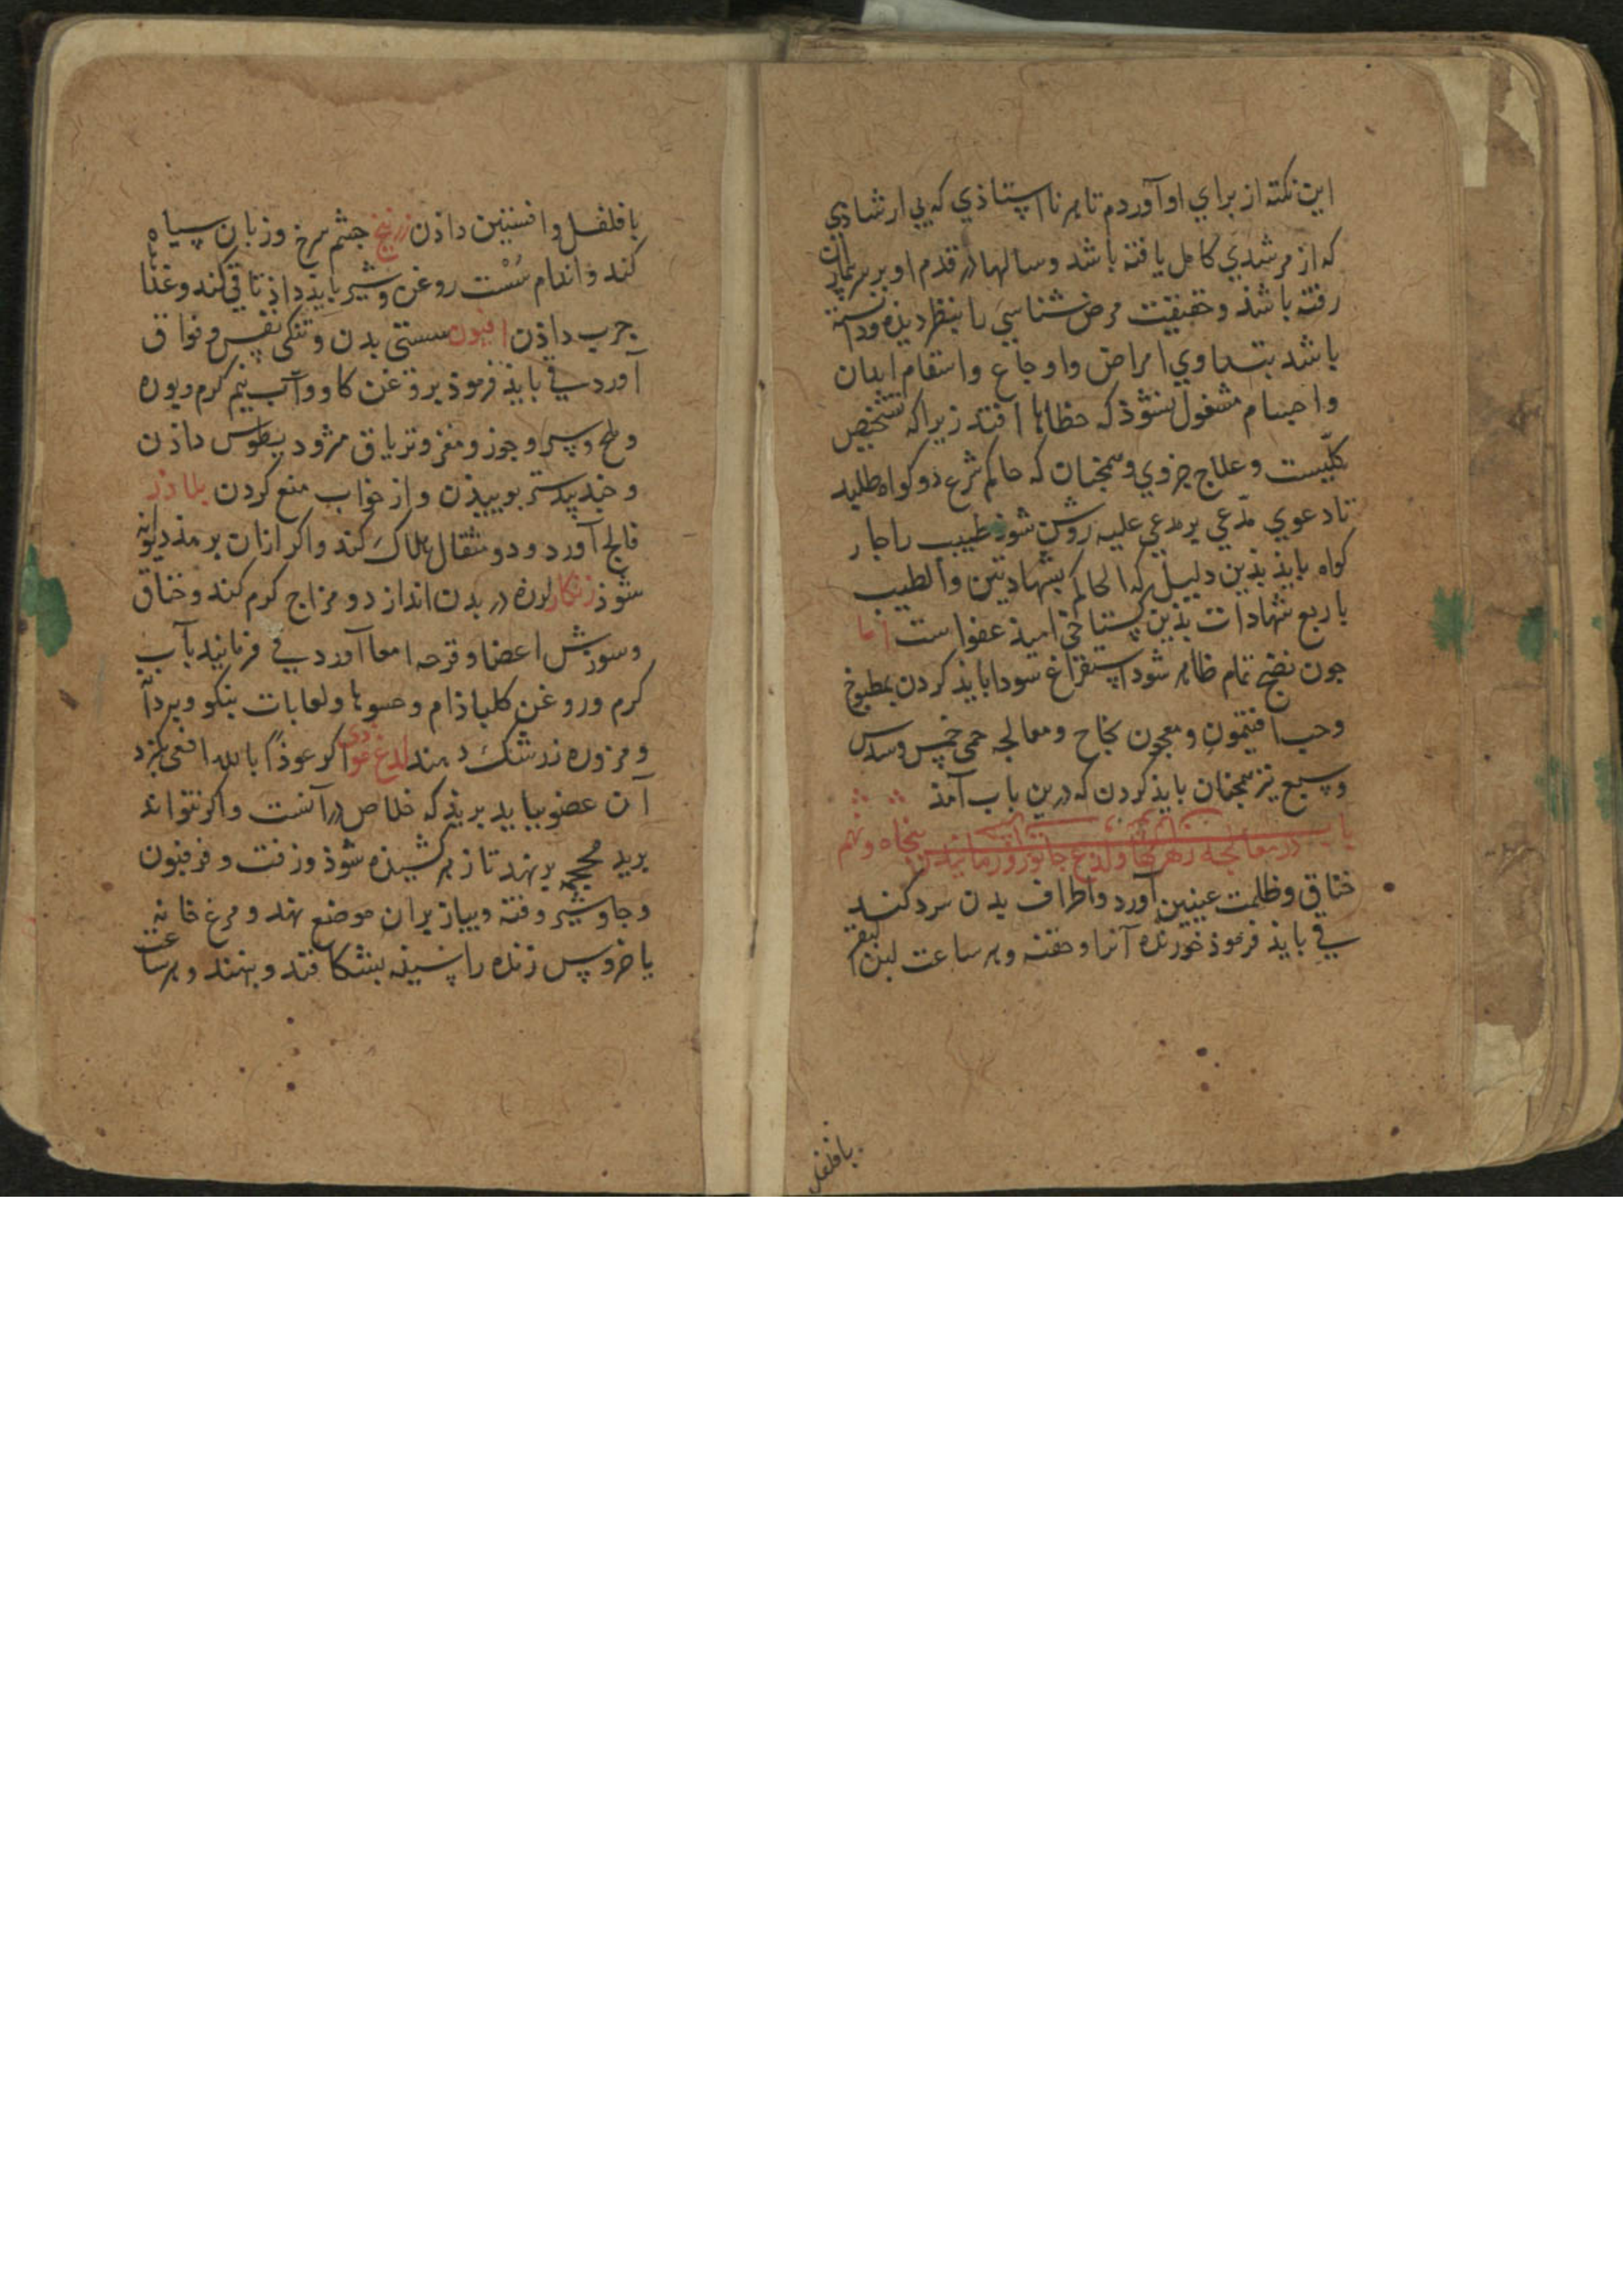 این نکته از برای او آوردم تا هر نا استاذی که بی ارشادی
که از مرشدی کامل یافته باشد و سالها در قدم او بر سر بیماران
رفته باشذ و حقیقت مرض شناسی را بنظر دیذه و دانسته
باشد بتداوی امراض و اوجاع و اسقام ابدان
و اجسام مشغول نشوذ که خطاها افتد زیرا که تشخیص
کلّیست و علاج جزوی و همجنان که حاکم شرع دو کواه طلبد
تا دعوی مدّعی بر مدعی علیه روشن شوذ طبیب را جار
کواه بایذ بذین دلیل که الحاکم بشهادتین و الطبیب
باربع شهادات بذین کستاخی امیذ عفو است اما
جون نضج تمام ظاهر شود استفراغ سودا بایذ کردن بمطبوخ
و حب افتیمون و معجون نجاح و معالجه حمی خمس و سدس
و سبع نیز همجنان بایذ کردن که درین باب آمذ
باب پنجاه و نهم در معالجه زهرها و لدغ جانور
خناق و ظلمت عینین آورد و اطراف بدن سرد کند
قی بایذ فرموذ خورنده آنرا و حقنه و هر ساعت لبن البقر
بافلفل
بافلفل و افسنتین داذن زرنیخ جشم سرخ و زبان سیاه
کند و اندام سُسْت روغن و شیر بایذ داذ تا قی کند و غذا
جرب داذن افیون سستی بدن و تنکی نفس و فواق
آورد قی بایذ فرموذ بروغن کاو و آب نیم کرم و بوره
و ملح و سیر و جوز و مغز و تریاق مثرودیطوس داذن
و جندبیدستر بوییذن و از خواب منع کردن بلاذر
فالج آورد و دو مثقال هلاک کند و اکر ازان برهذ دیوانه
شوذ زنکار لرزه در بدن انداز دو مزاج کرم کند و خناق
و سوزش اعضا و قرحه امعا آورد قی فرمایند بآب
کرم و روغن کل بادام و حسوها و لعابات بنکو و بردانه
و مزوره زرشک دهند لدغ عوادی اکر عوذاً بالله افعی بکزد
آن عضو بباید بریذ که خلاص در آنست و اکر نتواند
برید محجمه برنهد تا زهر کشیذه شوذ و زفت و فرفیون
و جاوشیر و قنه و بیاز بران موضع نهد و مرغ خانه
یا خروس زنده را سینه بشکافند و بنهند و هر ساعت